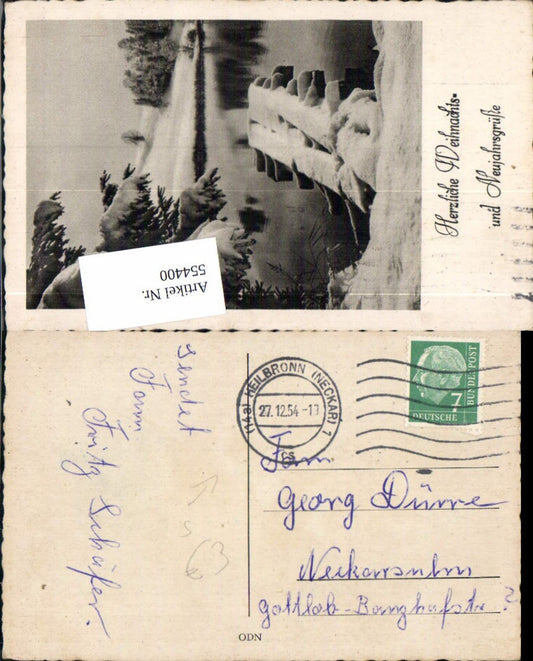 Herzliche Weihnachts-
und Neujahrsgrüße
Artikel Nr.
554400
sendet
Fam
Fritz Schäfer.
(14a) HEILBRONN (NECKAR) 1
27.12.54
DEUTSCHE
BUNDESPOST
7
Fam.
Georg Dürre
Neckarsulm
Gottlob-Banzhafstr. ?
63
ODN